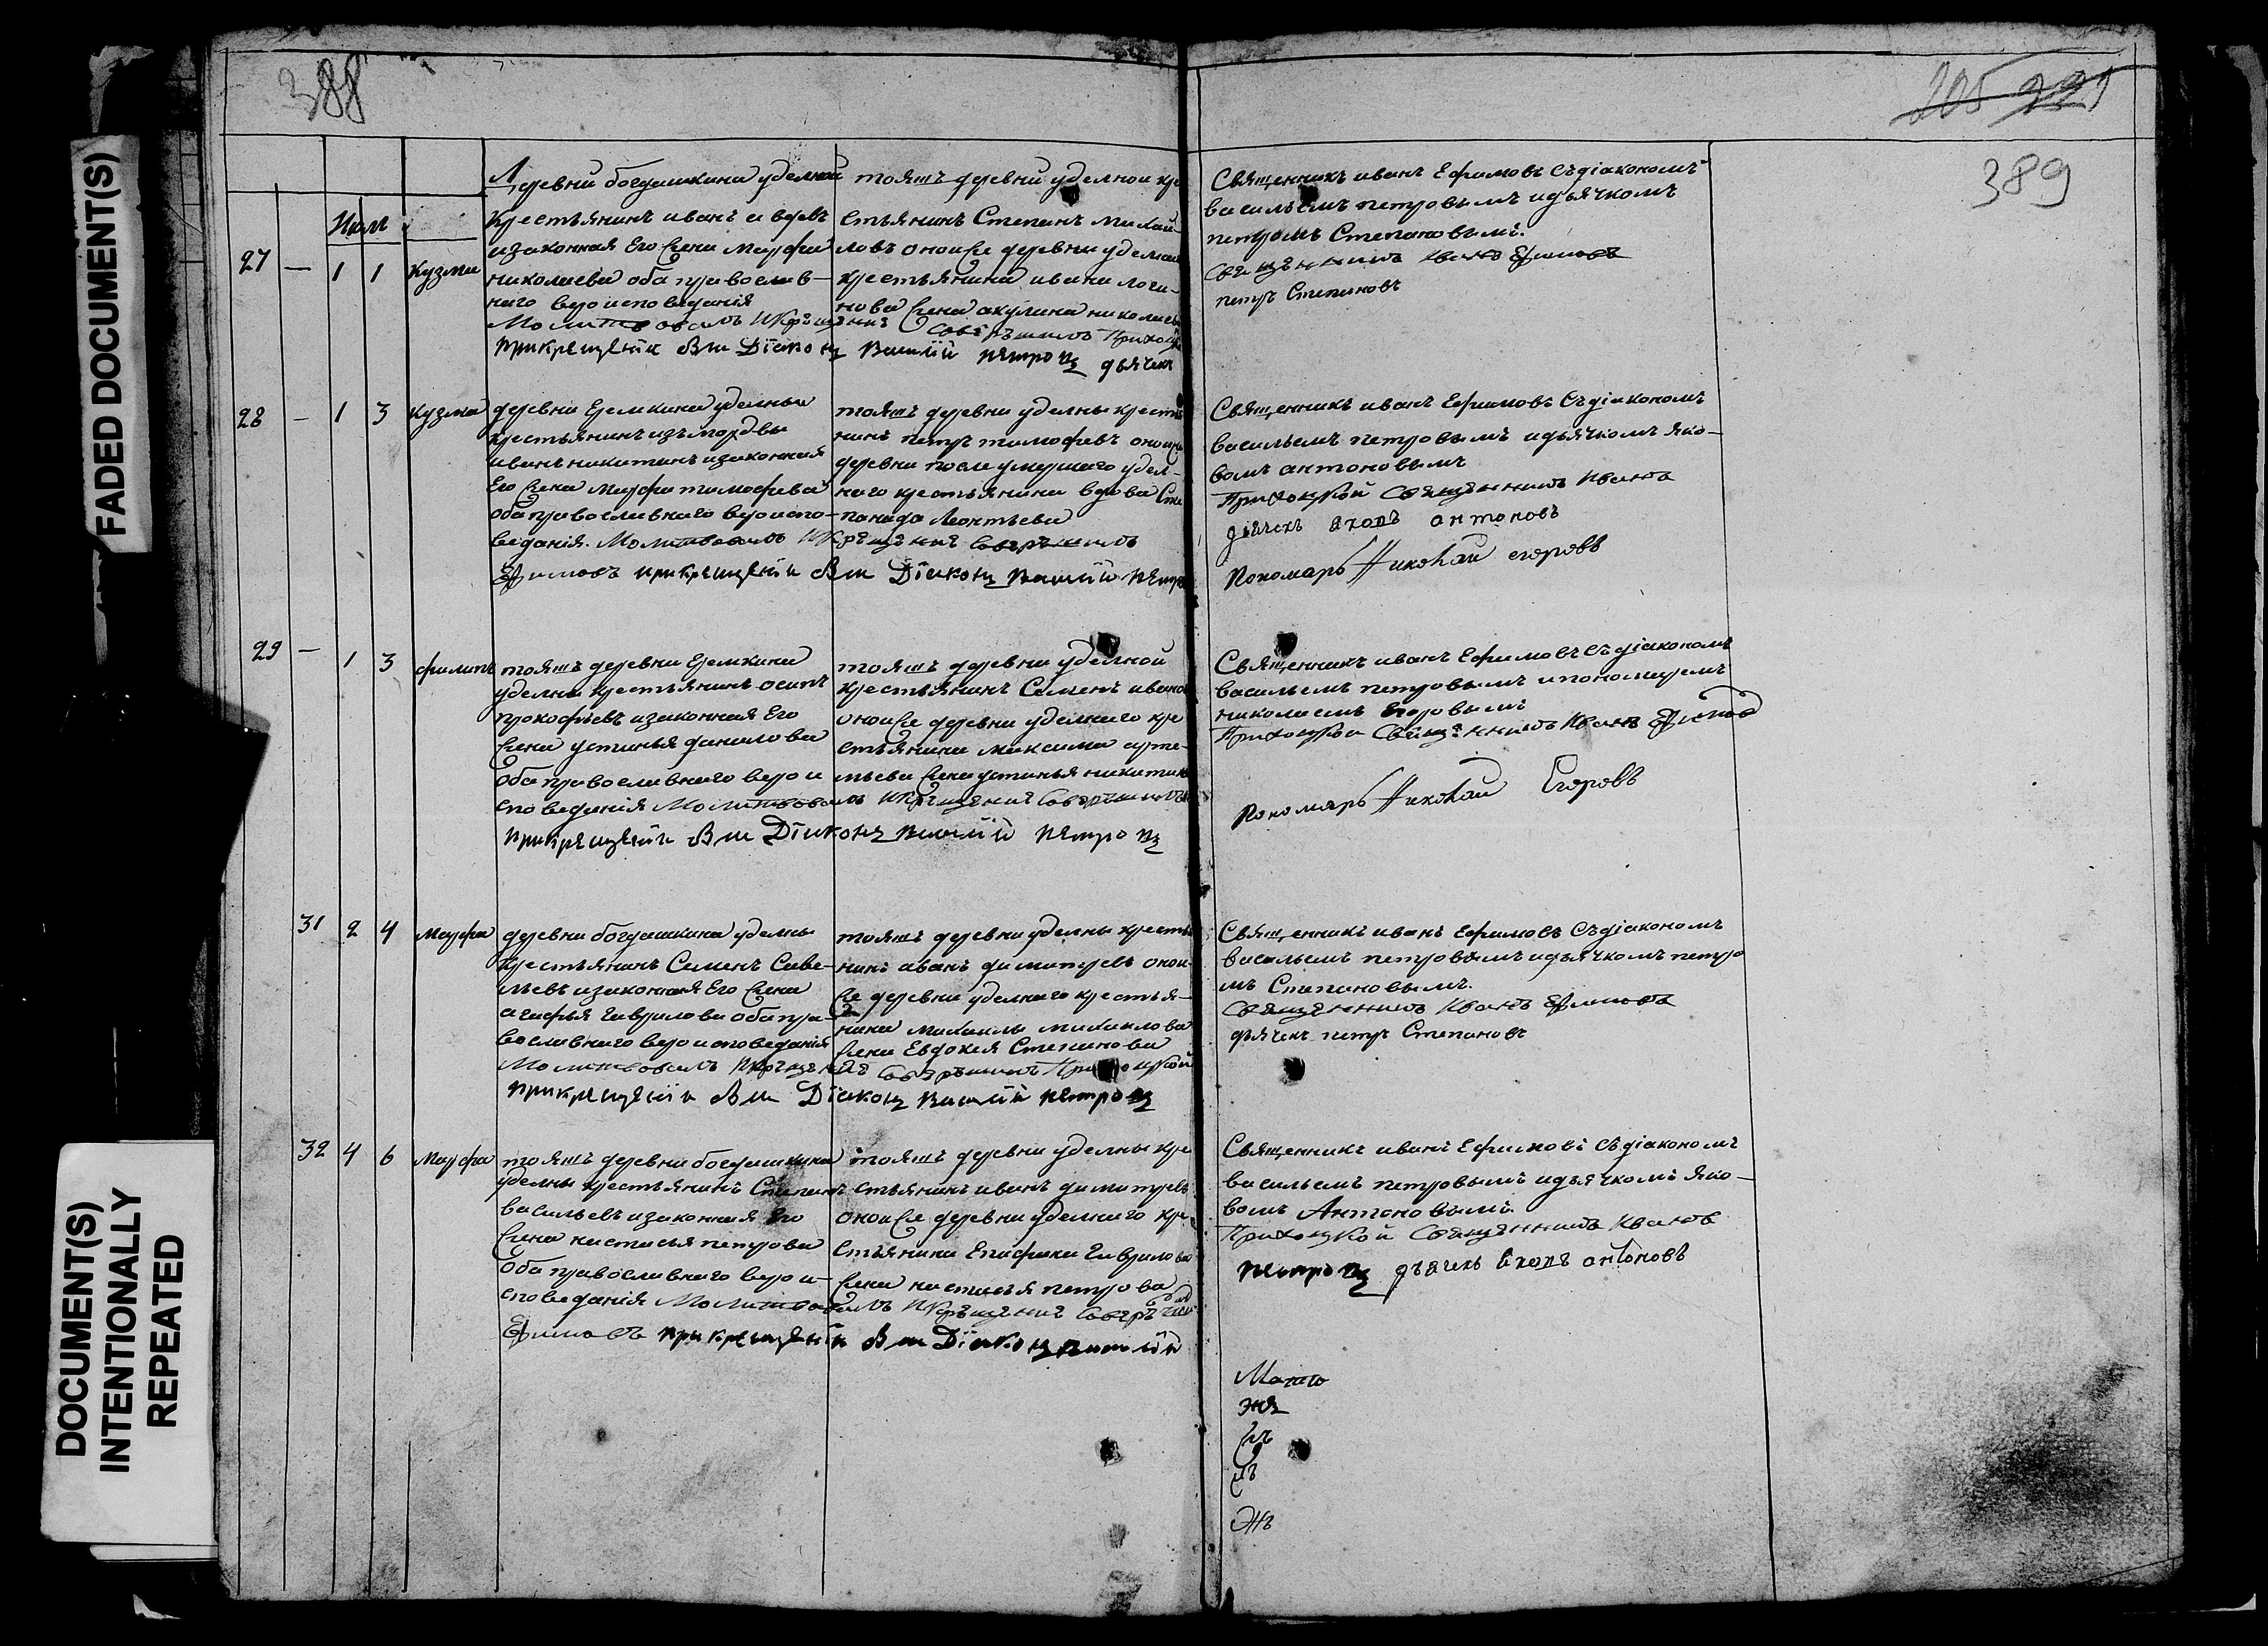 388
205 221
389
FADED DOCUMENT(S)
DOCUMENT(S)
INTENTIONALLY
REPEATED
27 — 1 1 Кузма
деревни богдашкина уделной
крестьянинъ иванъ
изаконная Его жена марфа
николаева оба православ-
наго вероисповедания
Молитвовалъ Икрещение Совершилъ Приходской
прикрещении Был Дїаконъ Василїй петровъ дьячекъ
тояжъ деревни уделной кре
стьянинъ Степанъ михай-
ловъ оноиже деревни уделнаго
крестьянина ивана логи-
нова жена акулина николаева
Священникъ иванъ Ефимовъ съдіакономъ
васильемъ петровымъ идьячкомъ
петромъ Степановымъ.
Священникъ Иванъ Ефимовъ
петръ Степановъ
28 — 1 3 Кузма
деревни Еремкина уделны
крестьянинъ измордвы
иванъ никитинъ изаконная
Его жена марфа тимофеева
оба православнаго вероиспо-
ведания. Молитвовалъ Икрещение Совершилъ
Ефимовъ прикрещении Был Дїаконъ Василїй петровъ
тояжъ деревни уделны крестья
нинъ петръ тимофеевъ оноиже
деревни после умершаго удел-
наго крестьянина вдова Сте
панида Леонтьева
Священникъ иванъ Ефимовъ съдіакономъ
васильемъ петровымъ идьячкомъ яко-
вомъ антоновымъ
Приходской Священникъ Иванъ
дьячекъ яковъ антоновъ
Пономарь Николай егоровъ
29 — 1 3 филипъ
тояжъ деревни Еремкина
уделны крестьянинъ осипъ
прокофьевъ изаконная Его
жена устинья данилова
оба православнаго верои
споведания Молитвовалъ Икрещение Совершилъ
прикрещении Был Дїаконъ Василїй петровъ
тояжъ деревни уделной
крестьянинъ Семенъ иванов
оноиже деревни уделнаго кре
стьянина максима арте-
мьева жена устинья никитина
Священникъ иванъ Ефимовъ съдіакономъ
васильемъ петровымъ ипономаремъ
николаемъ Егоровымъ
Приходской Священникъ Иванъ Ефимовъ
Пономарь Николай Егоровъ
31 2 4 Марфа
деревни богдашкина уделны
крестьянинъ Семенъ Саве-
льевъ изаконная Его жена
агафья гаврилова оба пра-
вославнаго вероисповедания
Молитвовалъ Икрещение Совершилъ Приходской
прикрещении Был Дїаконъ Василїй петровъ
тояжъ деревни уделны крестья
нинъ иванъ димитревъ онои
же деревни уделнаго крестья-
нина михаилы михаилова
жена Евдокея Степанова
Священникъ иванъ Ефимовъ съдіакономъ
васильемъ петровымъ идьячкомъ петро
мъ Степановымъ.
Священникъ Иванъ Ефимовъ
дьячекъ петръ Степановъ
32 4 6 Марфа
тояжъ деревни богдашкина
уделны крестьянинъ Степанъ
васильевъ изаконная Его
жена настасья петрова
оба православнаго верои-
споведания Молитвовалъ Икрещение Совершилъ
Ефимовъ прикрещении Был Дїаконъ Василїй
тояжъ деревни уделны кре
стьянинъ иванъ димитревъ
оноиже деревни уделнаго кре
стьянина Епифана Гаврилова
жена настасья петрова
Священникъ иванъ Ефимовъ съдіакономъ
васильемъ петровымъ идьячкомъ яко-
вомъ Антоновымъ
Приходской Священникъ Иванъ
петровъ дьячекъ яковъ антоновъ